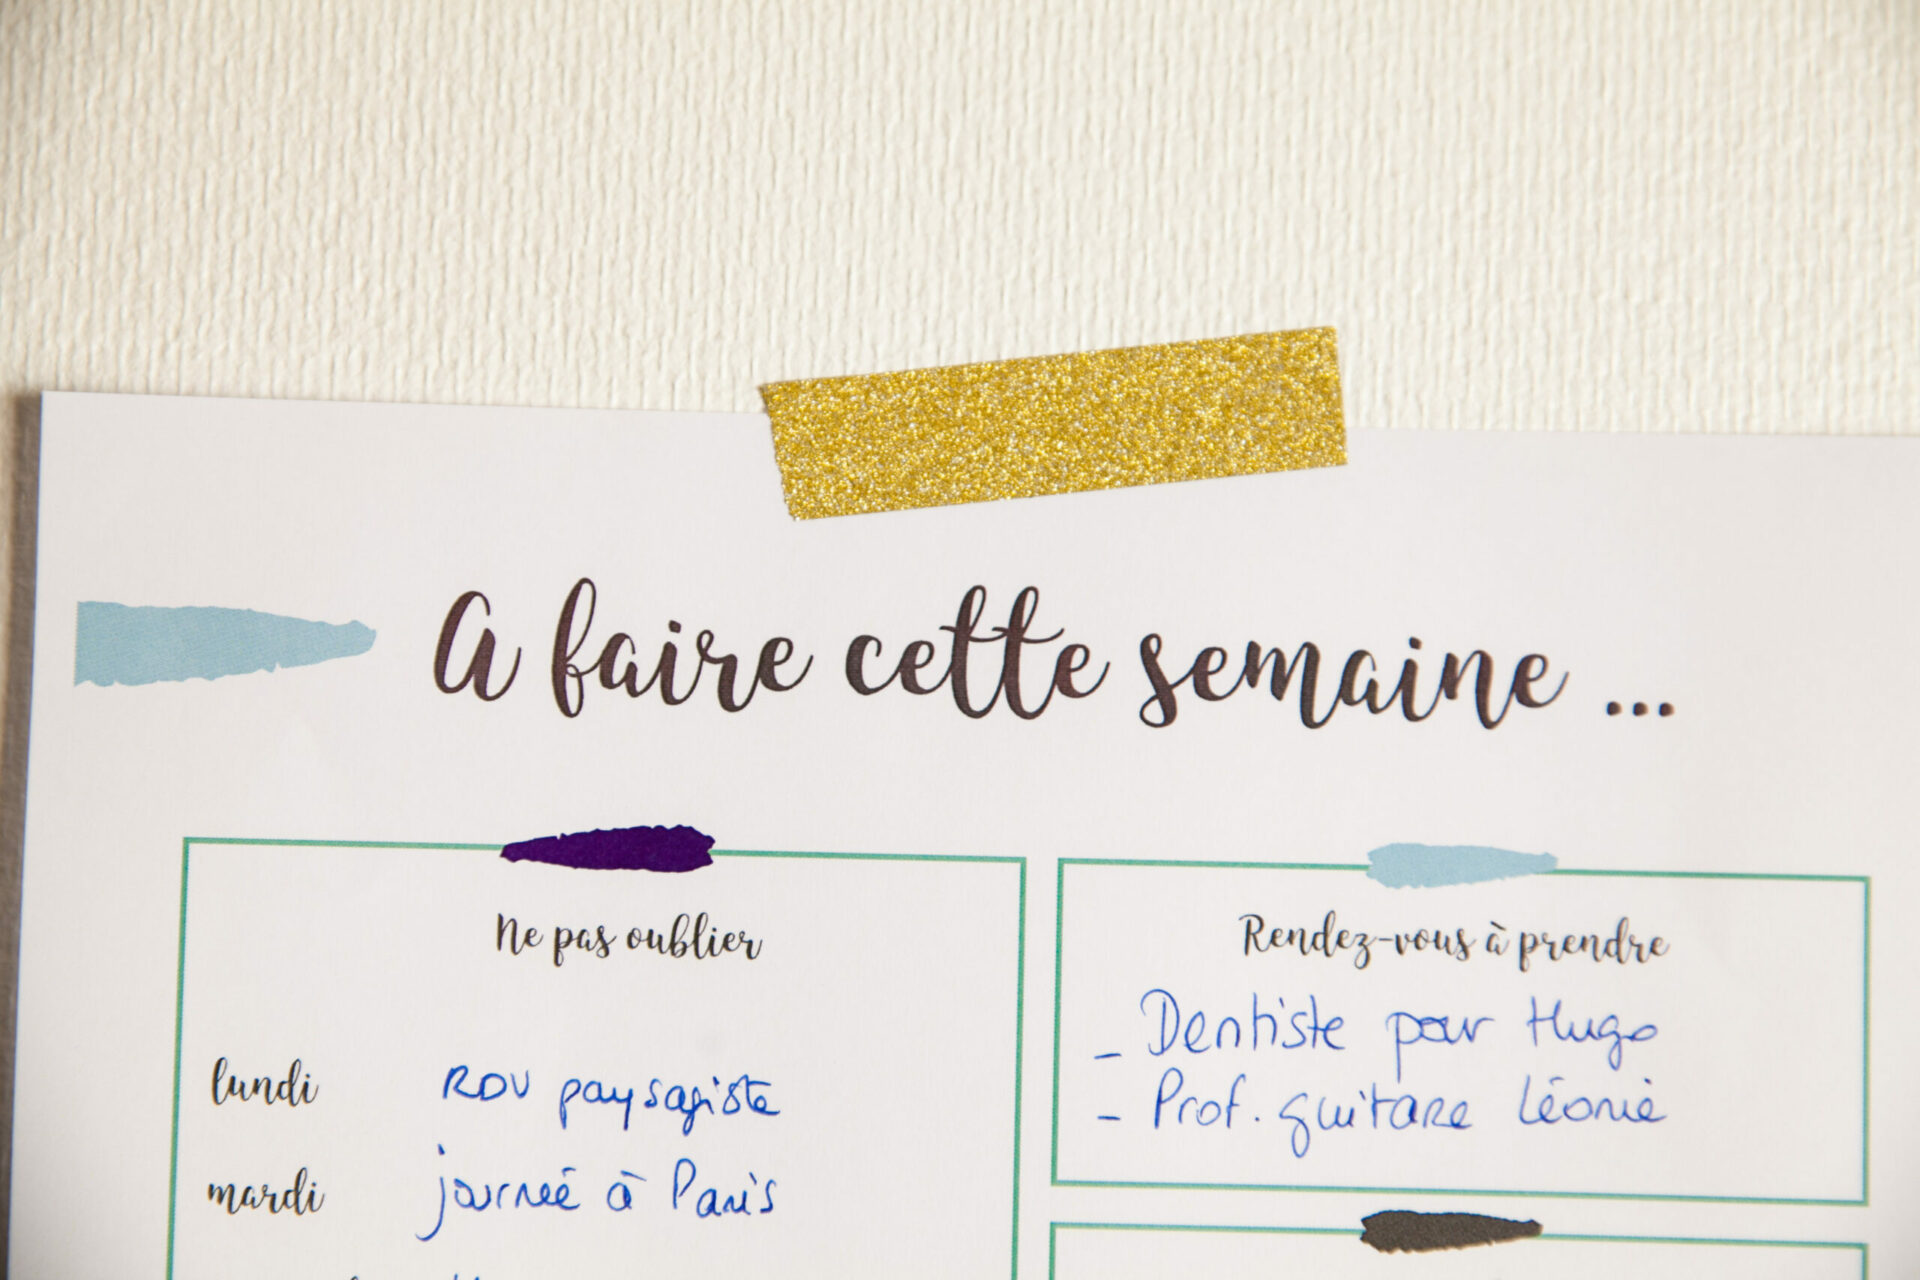 A faire cette semaine ...
Ne pas oublier
lundi RDV paysagiste
mardi journée à Paris
Rendez-vous à prendre
- Dentiste pour Hugo
- Prof. guitare Léonie